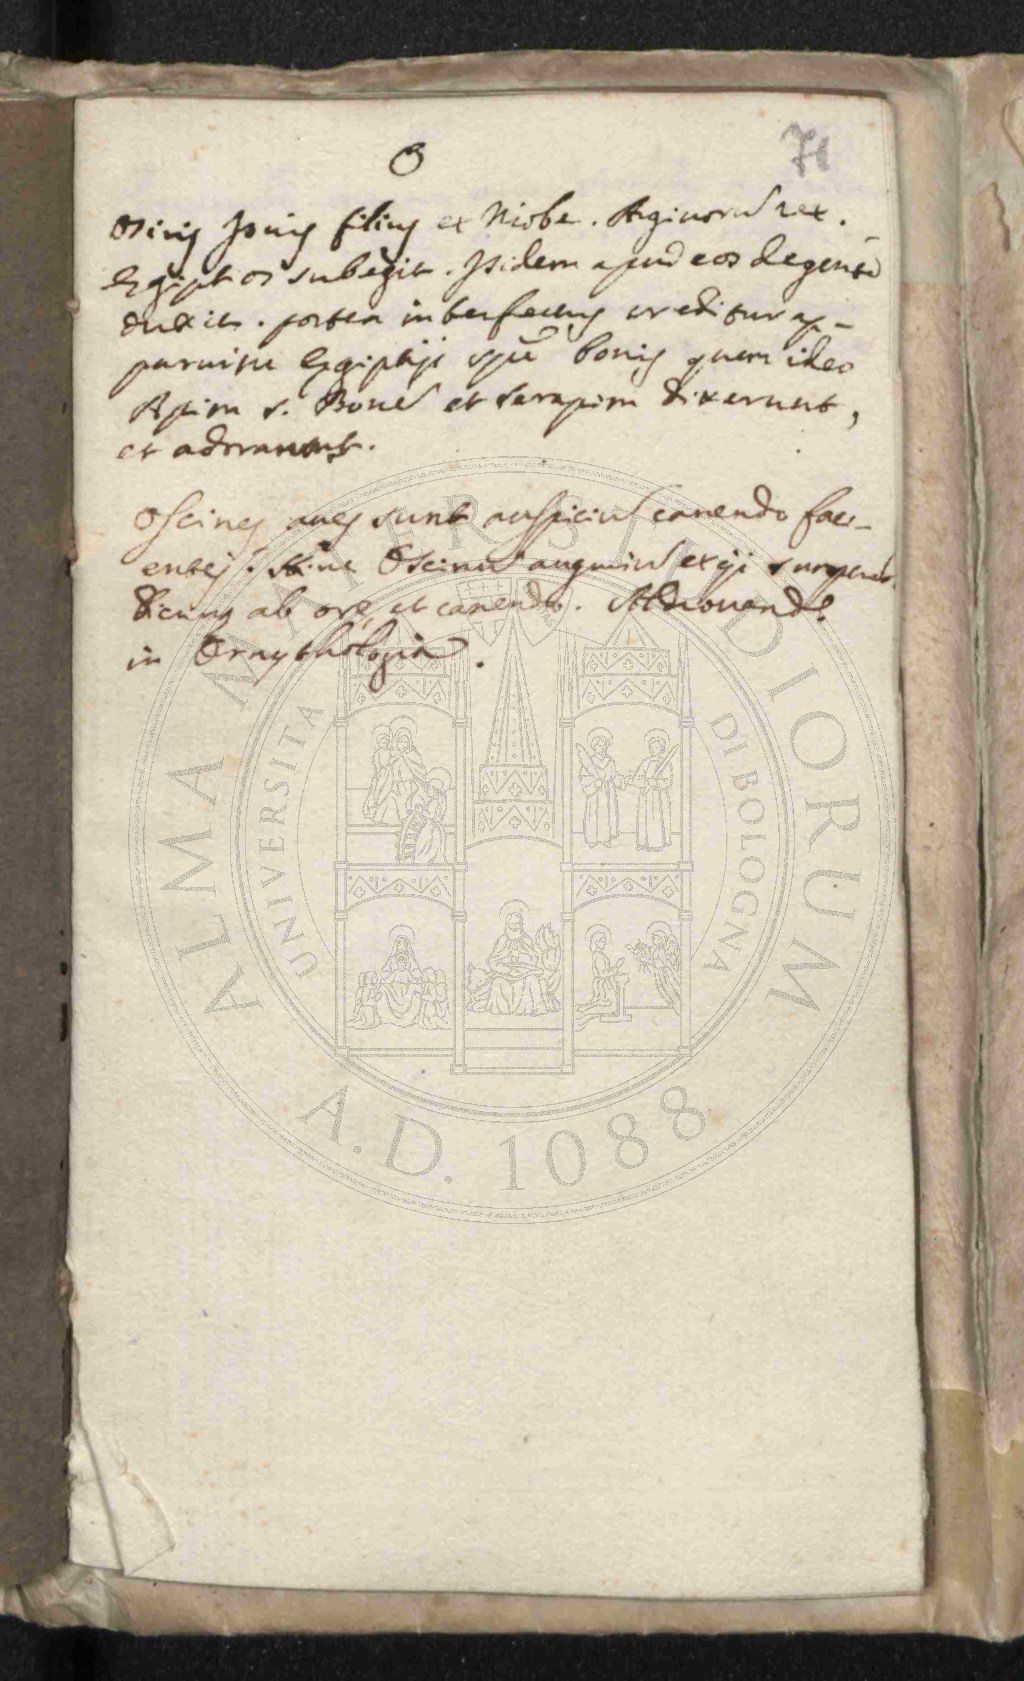 O
71
Osiris Jovis filius ex Niobe. Argivorū rex.
Egiptos subegit. Isidem apud eos degentē
duxit. postea interfectus creditur ap-
paruisse Egiptijs spē bovis quem ideo
Apim s. Bovē et serapim dixerunt,
et adorarunt.
Oscines aves sunt auspiciū canendo faci-
entes. Hinc Oscinū auguriū ex ijs
dicimus ab ore, et canendo. Aldrovand9
in Ornythologia.
ALMA MATER STUDIORUM
UNIVERSITA DI BOLOGNA
A.D. 1088